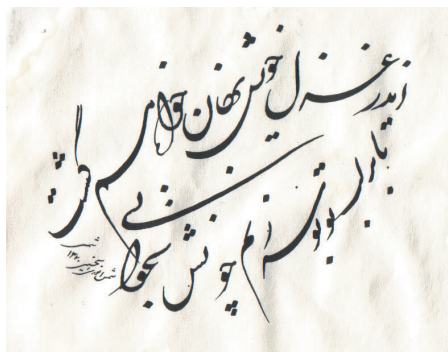 اندر غزل خویش نهان خواهم گشت
تا بر لب تو بوسه زنم چونش بخوانی